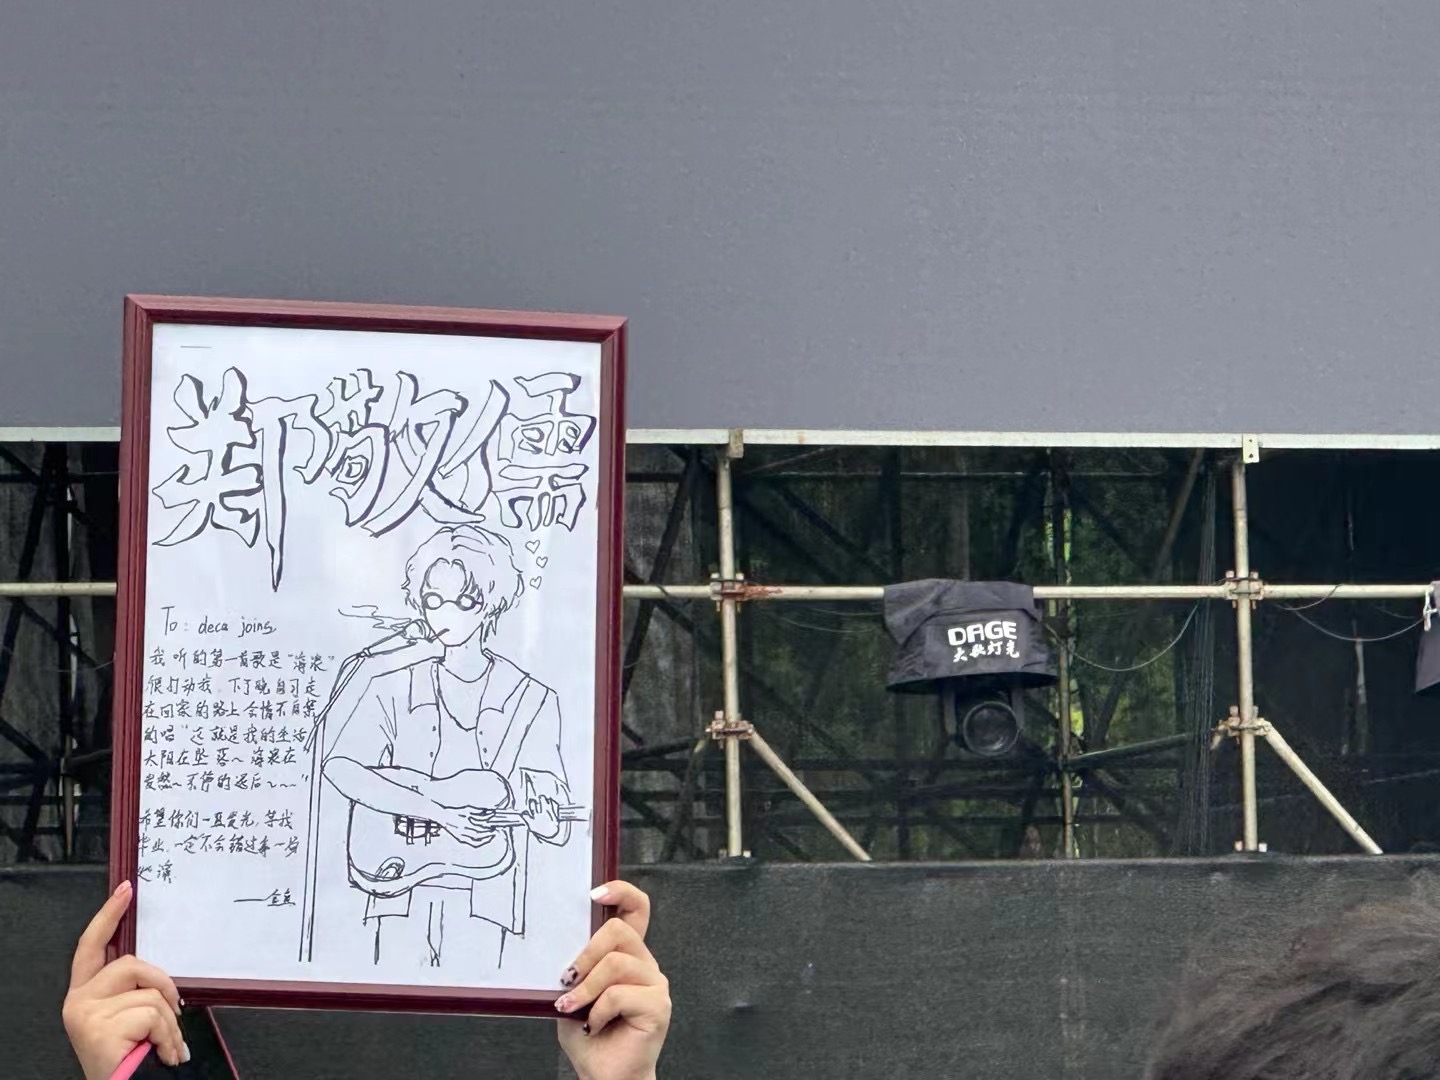 郑敬儒
To: deca joins
我听的第一首歌是"海浪"
很打动我. 下了晚自习走
在回家的路上会情不自禁
的唱"这就是我的生活
太阳在坠落~ 海浪在
发愁~不停的退后~~~"
希望你们一直发光, 等我
毕业, 一定不会错过每一场
巡演
DAGE
大歌灯光